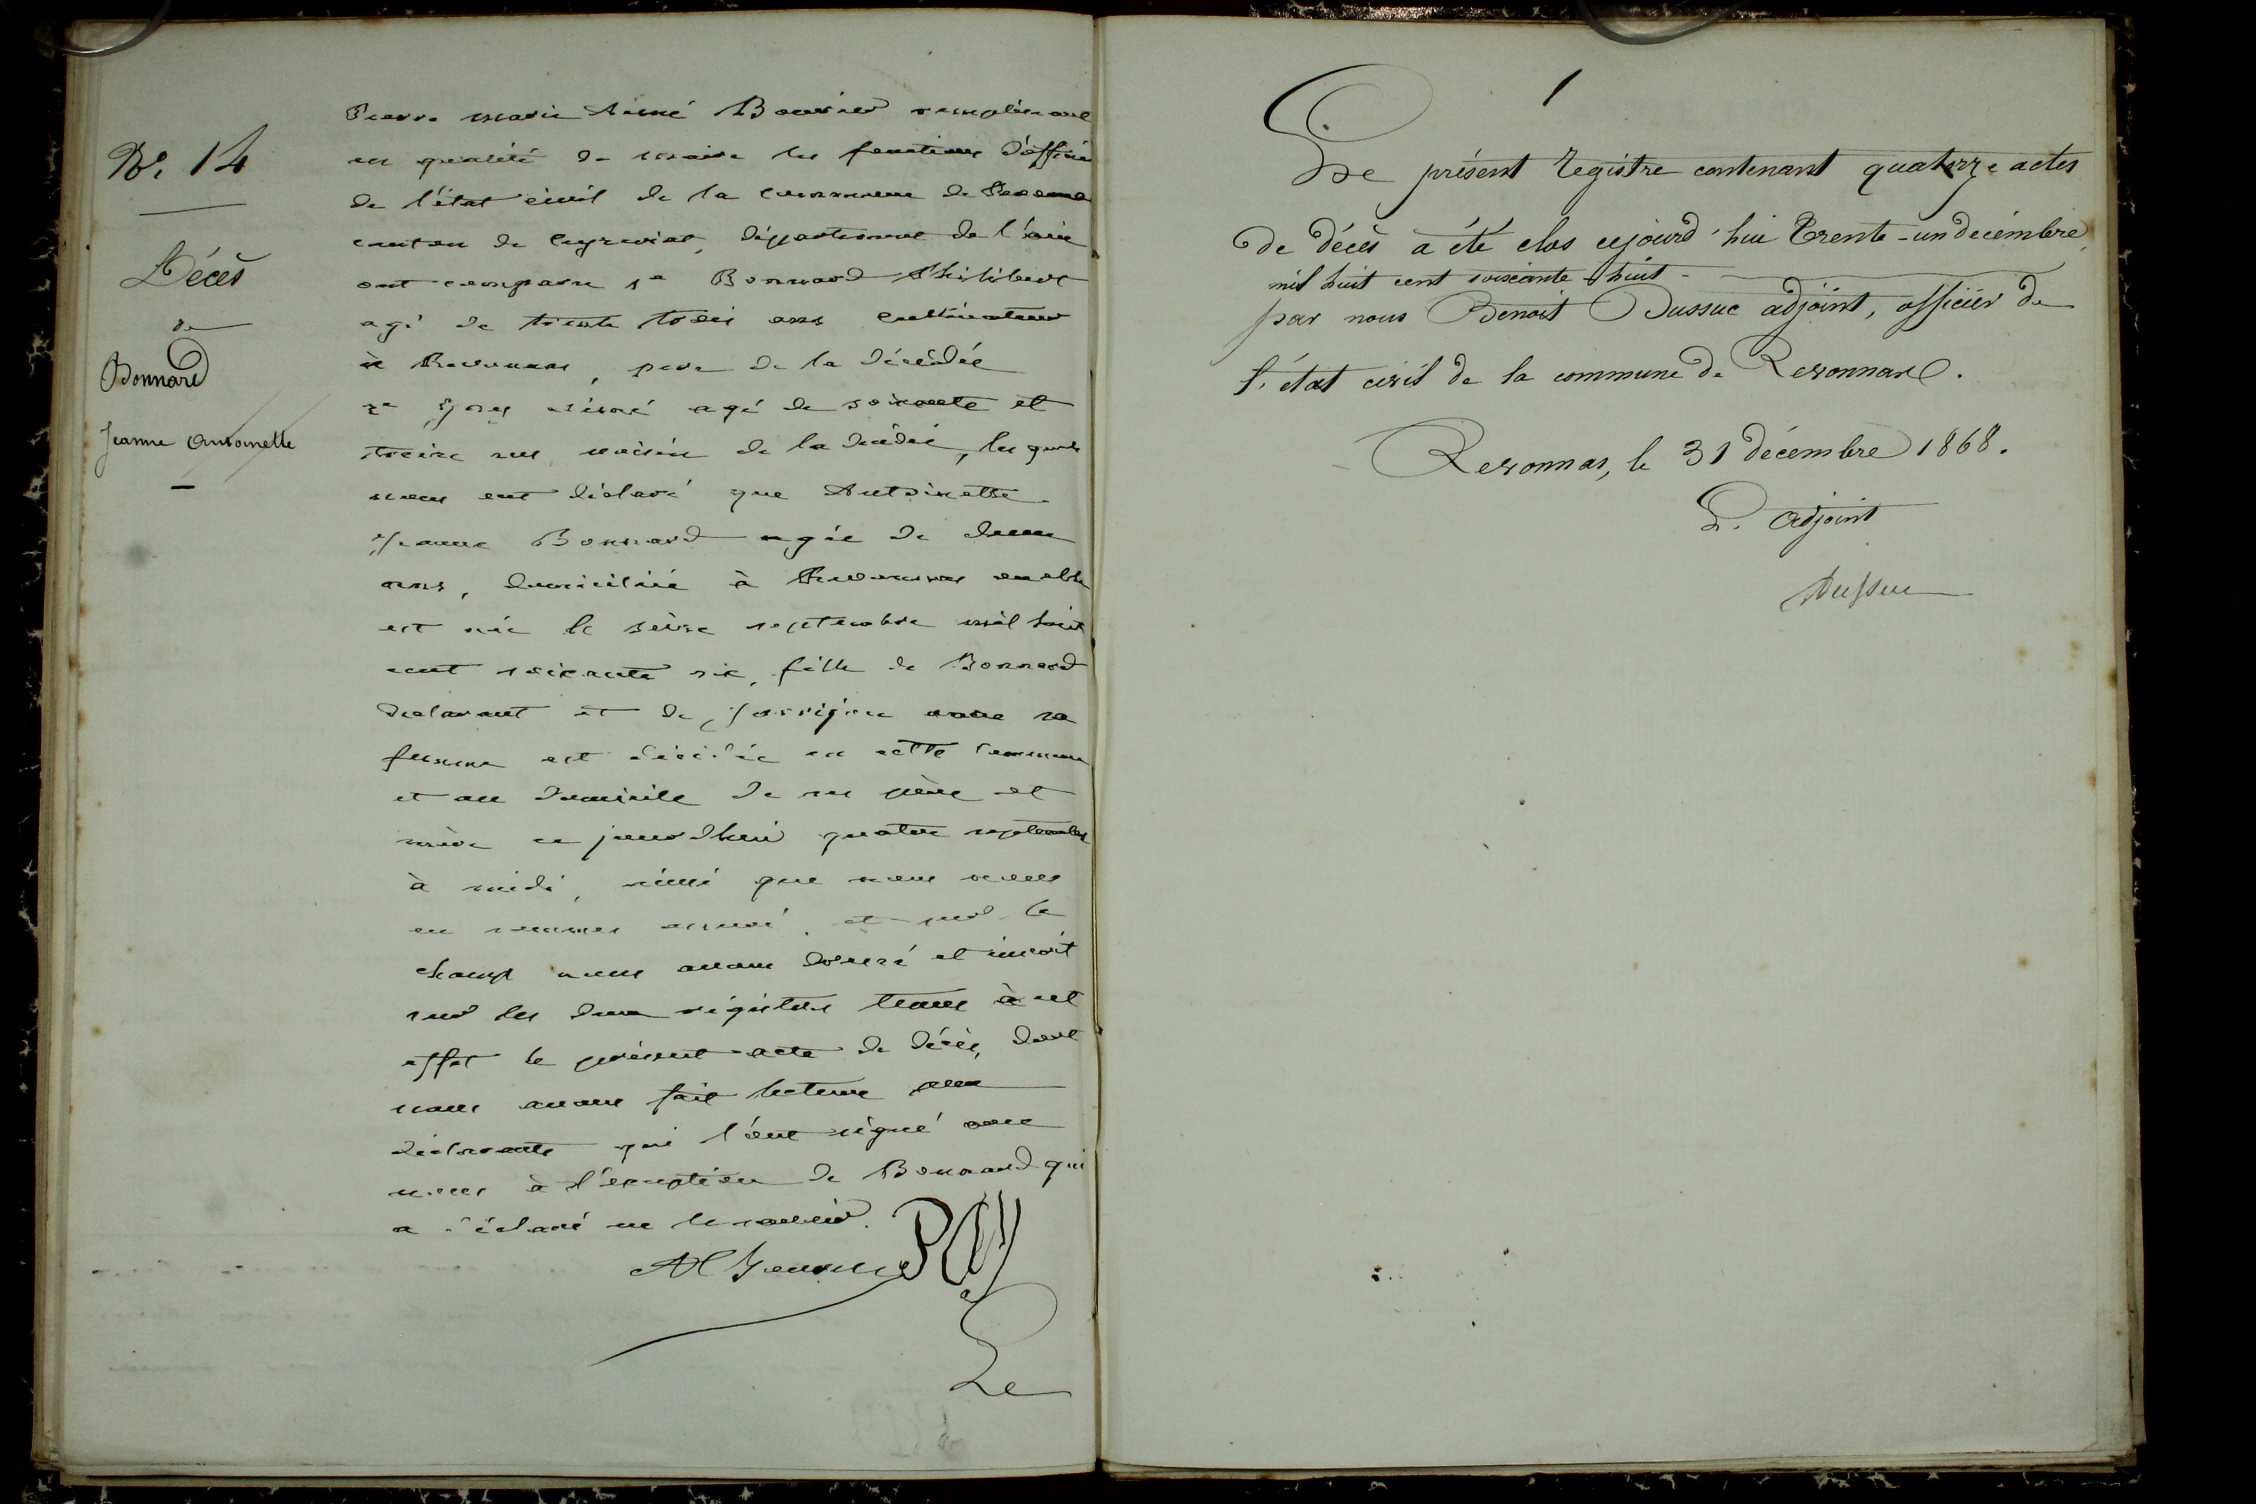 No. 14
Décès
de
Bonnard
Jeanne Antoinette
Pierre marie Aimé Bouvier remplissant
en qualité de maire les fonctions d'officier
de l'état civil de la commune de
canton de Ceyzeriat, département de l'ain
ont comparu 1e Bonnard Philibert
agé de trente trois ans cultivateur
à Revonnas, père de la décédée
2e agé de soixante et
treize ans voisin de la décédée, les quels
nous ont déclaré que Antoinette
Jeanne Bonnard agée de deux
ans, domiciliée à Revonnas ou elle
est née le seize septembre mil huit
cent soixante six, fille de Bonnard
declarant et de sa
femme est décédée en cette commune
et au domicile de ses père et
mère ce jourd'hui quatre septembre
à midi, ainsi que nous nous
en sommes assuré, et sur le
champ nous avons dressé et inscrit
sur les deux régistres tenus à cet
effet le présent acte de décès, dont
nous avons fait lecture aux
déclarants qui l'ont signé avec
nous à l'exception de Bonnard qui
a déclaré ne le savoir.
Le
Le présent Registre contenant quatorze actes
de décès a été clos cejourd'hui Trente-un décembre
mil huit cent soixante huit
par nous Benoit Dussuc adjoint, officier de
l'état civil de la commune de Revonnas.
Revonnas, le 31 décembre 1868.
L. adjoint
Dussuc